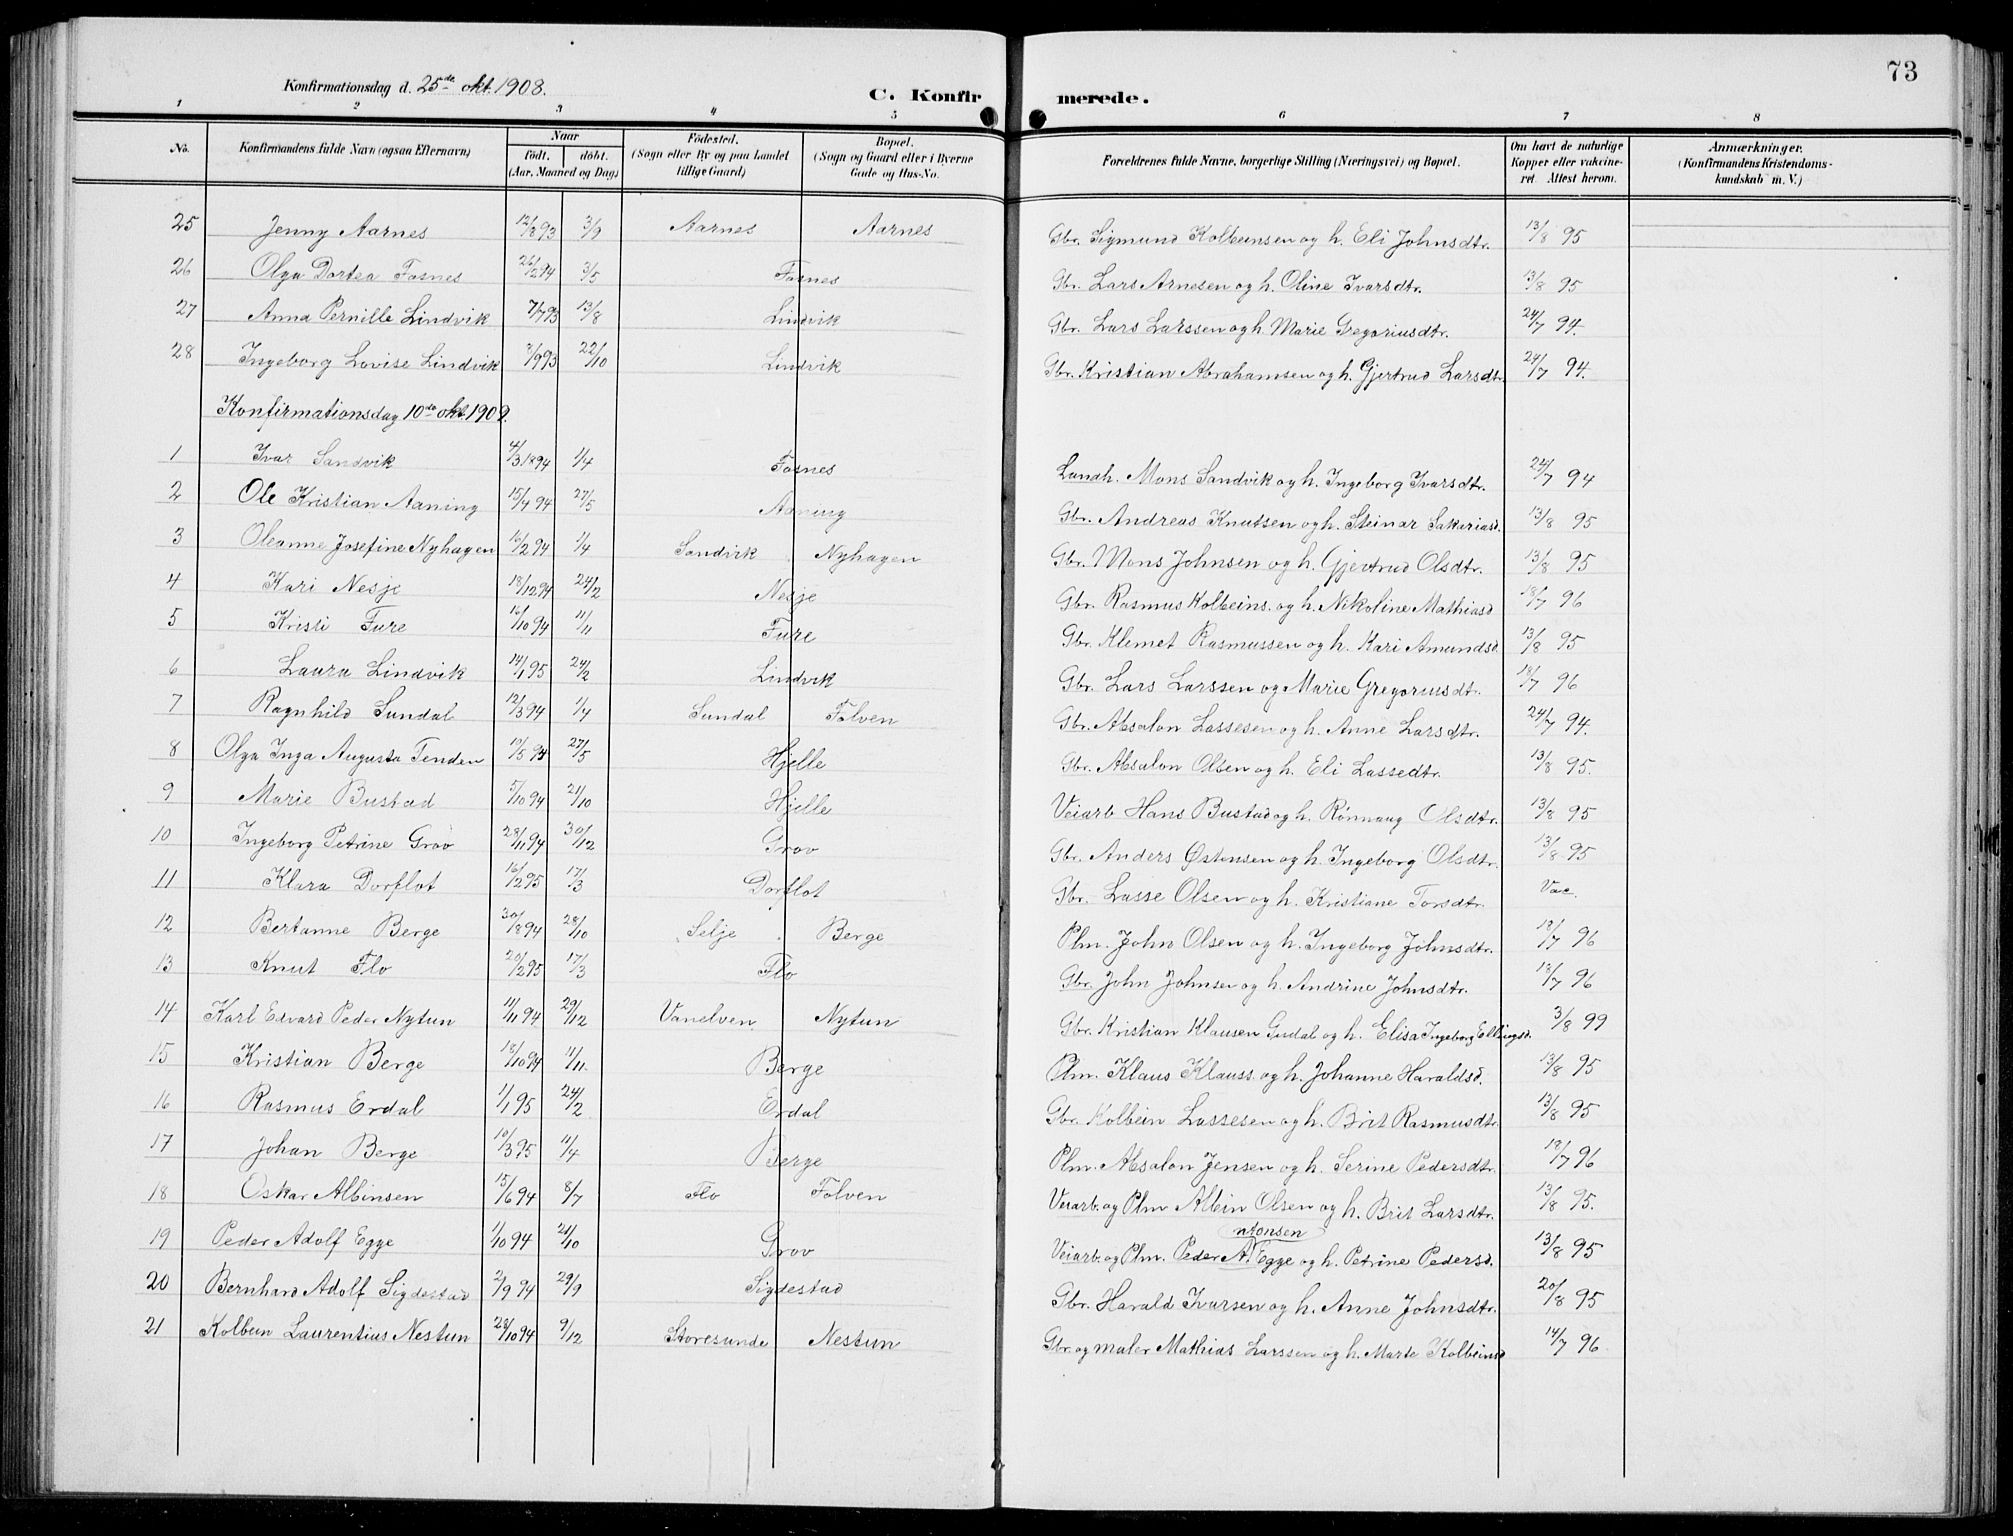 73
Konfirmationsdag d. 25de okt. 1908.
C. Konfirmerede.
1 2 3 4 5 6 7 8
No. Konfirmandens fulde Navn (ogsaa Efternavn) Naar født. døbt. (Aar, Maaned og Dag) Fødested. (Sogn eller By og paa Landet tillige Gaard) Bopæl. (Sogn og Gaard eller i Byerne Gade og Hus-No. Forældrenes fulde Navne, borgerlige Stilling (Næringsvei) og Bopæl. Om havt de naturlige Kopper eller vakcineret. Attest herom. Anmærkninger. (Konfirmandens Kristendomskundskab m. V.)
25 Jenny Aarnes 12/8 93 3/9 Aarnes Aarnes Gbr. Sigmund Kolbeinsen og h. Eli Johnsdtr. 13/8 95
26 Olga Dortea Fosnes 26/2 94 3/5 Fosnes Gbr. Lars Arnesen og h. Oline Ivarsdtr. 13/8 95
27 Anna Pernille Lindvik 7/7 93 13/8 Lindvik Gbr. Lars Larssen og h. Marie Gregoriusdtr. 24/7 94.
28 Ingeborg Lovise Lindvik 8/9 93 22/10 Lindvik Gbr. Kristian Abrahamsen og h. Gjertrud Larsdtr. 24/7 94.
Konfirmationsdag 10de okt. 1909.
1 Ivar Sandvik 4/3 1894 1/4 Fosnes Landh. Mons Sandvik og h. Ingeborg Ivarsdtr. 24/7 94
2 Ole Kristian Aaning 15/4 94 27/5 Aaning Gbr. Andreas Knutsen og h. Steinar Sakariasd. 13/8 95
3 Oleanne Josefine Nyhagen 16/2 94 1/4 Sandvik Nyhagen Gbr. Mons Johnsen og h. Gjertrud Olsdtr. 13/8 95
4 Kari Nesje 18/12 94 24/2 Nesje Gbr. Rasmus Kolbeins. og h. Nikoline Mathiasd 18/7 96
5 Kristi Fure 16/10 94 11/11 Fure Gbr. Klemet Rasmussen og h. Kari Amundsd. 13/8 95
6 Laura Lindvik 14/1 95 24/2 Lindvik Gbr. Lars Larssen og Marie Gregoriusdtr. 18/7 96
7 Ragnhild Sundal 12/3 94 1/4 Sundal Folven Gbr. Absalon Lassesen og h. Anne Larsdtr. 24/7 94.
8 Olga Inga Augusta Tenden 10/5 94 27/5 Hjelle Gbr. Absalon Olsen og h. Eli Lassedtr. 13/8 95.
9 Marie Bustad 5/10 94 21/10 Hjelle Veiarb. Hans Bustad og h. Rønnaug Olsdtr. 13/8 95
10 Ingeborg Petrine Grov 28/11 94 30/12 Grov Gbr. Anders Østensen og h. Ingeborg Olsdtr. 13/8 95
11 Klara Dorflot 16/2 95 17/3 Dorflot Gbr. Lasse Olsen og h. Kristiane Torsdtr. Vac.
12 Bertanne Berge 30/8 94 28/10 Selje Berge Plm. John Olsen og h. Ingeborg Johnsdtr. 18/7 96
13 Knut Flo 20/2 95 17/3 Flo Gbr. John Johnsen og h. Andrine Johnsdtr. 18/7 96
14 Karl Edvard Peder Nytun 11/11 94 29/12 Vanelven Nytun Gbr. Kristian Klausen Gudal og h. Elisa Ingeborg Ellingsd. 3/8 99
15 Kristian Berge 18/10 94 11/11. Berge Plm. Klaus Klauss. og h. Johanne Haraldsd. 13/8 95
16 Rasmus Erdal 1/1 95 24/2 Erdal Gbr. Kolbein Lassesen og h. Brit Rasmusdtr. 13/8 95
17 Johan Berge 10/3 95 11/4 Berge Plm. Absalon Jensen og h. Serine Pedersdtr. 18/7 96
18 Oskar Albinsen 15/6 94 8/7 Flo Folven Veiarb. og Plm Albin Olsen og h. Brit Larsdtr. 13/8 95.
19 Peder Adolf Egge 1/10 94 21/10 Grov Veiarb. og Plm. Peder Antonsen Egge og h. Petrine Pedersd. 13/8 95
20 Bernhard Adolf Sigdestad 2/9 94 29/9 Sigdestad Gbr. Harald Ivarsen og h. Anne Johnsdtr. 20/8 95
21 Kolbein Laurentius Nestun 28/10 94 9/12 Storesunde Nestun Gbr. og maler Mathias Larssen og h. Marte Kolbeinsd 14/7 96